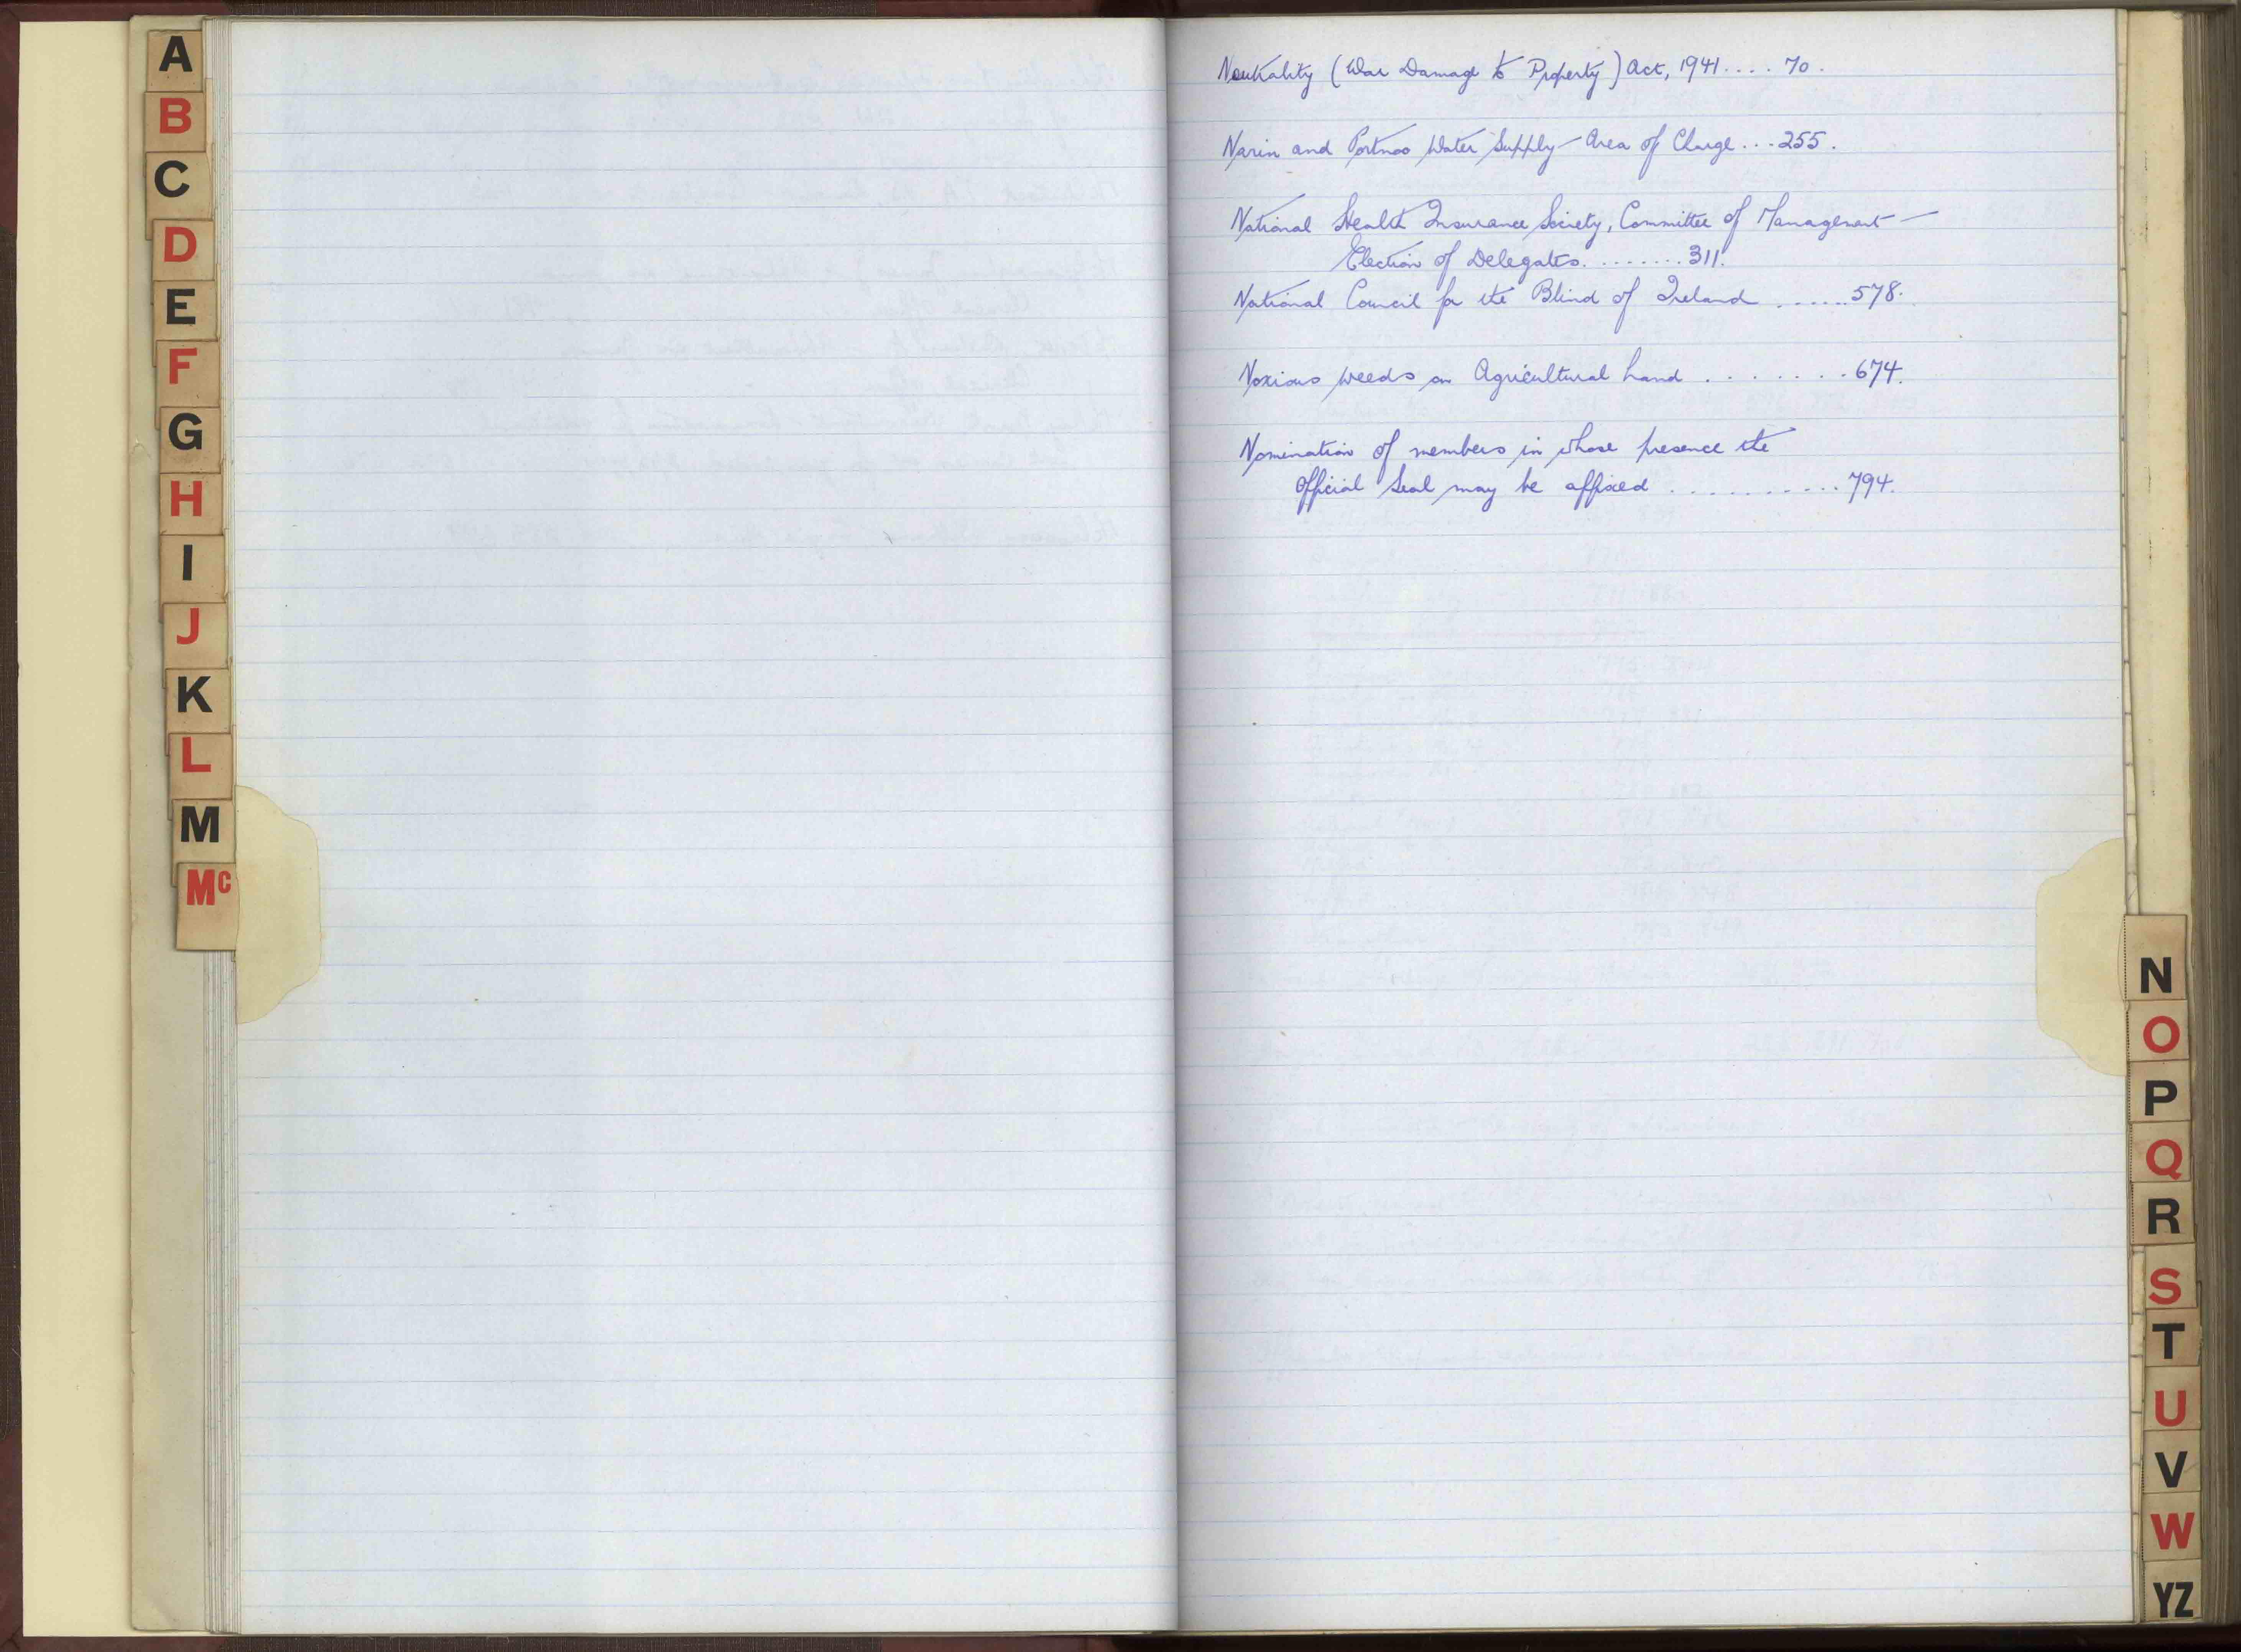 A
B
C
D
E
F
G
H
I
J
K
L
M
Mc
Neutrality (War Damage to Property) Act, 1941.... 70.
Narin and Portnoo Water Supply - Area of Charge ... 255.
National Health Insurance Society, Committee of Management -
Election of Delegates. ....... 311.
National Council for the Blind of Ireland ....... 578.
Noxious weeds on Agricultural Land ........ 674.
Nomination of members in whose presence the
Official Seal may be affixed .......... 794.
N
O
P
Q
R
S
T
U
V
W
YZ